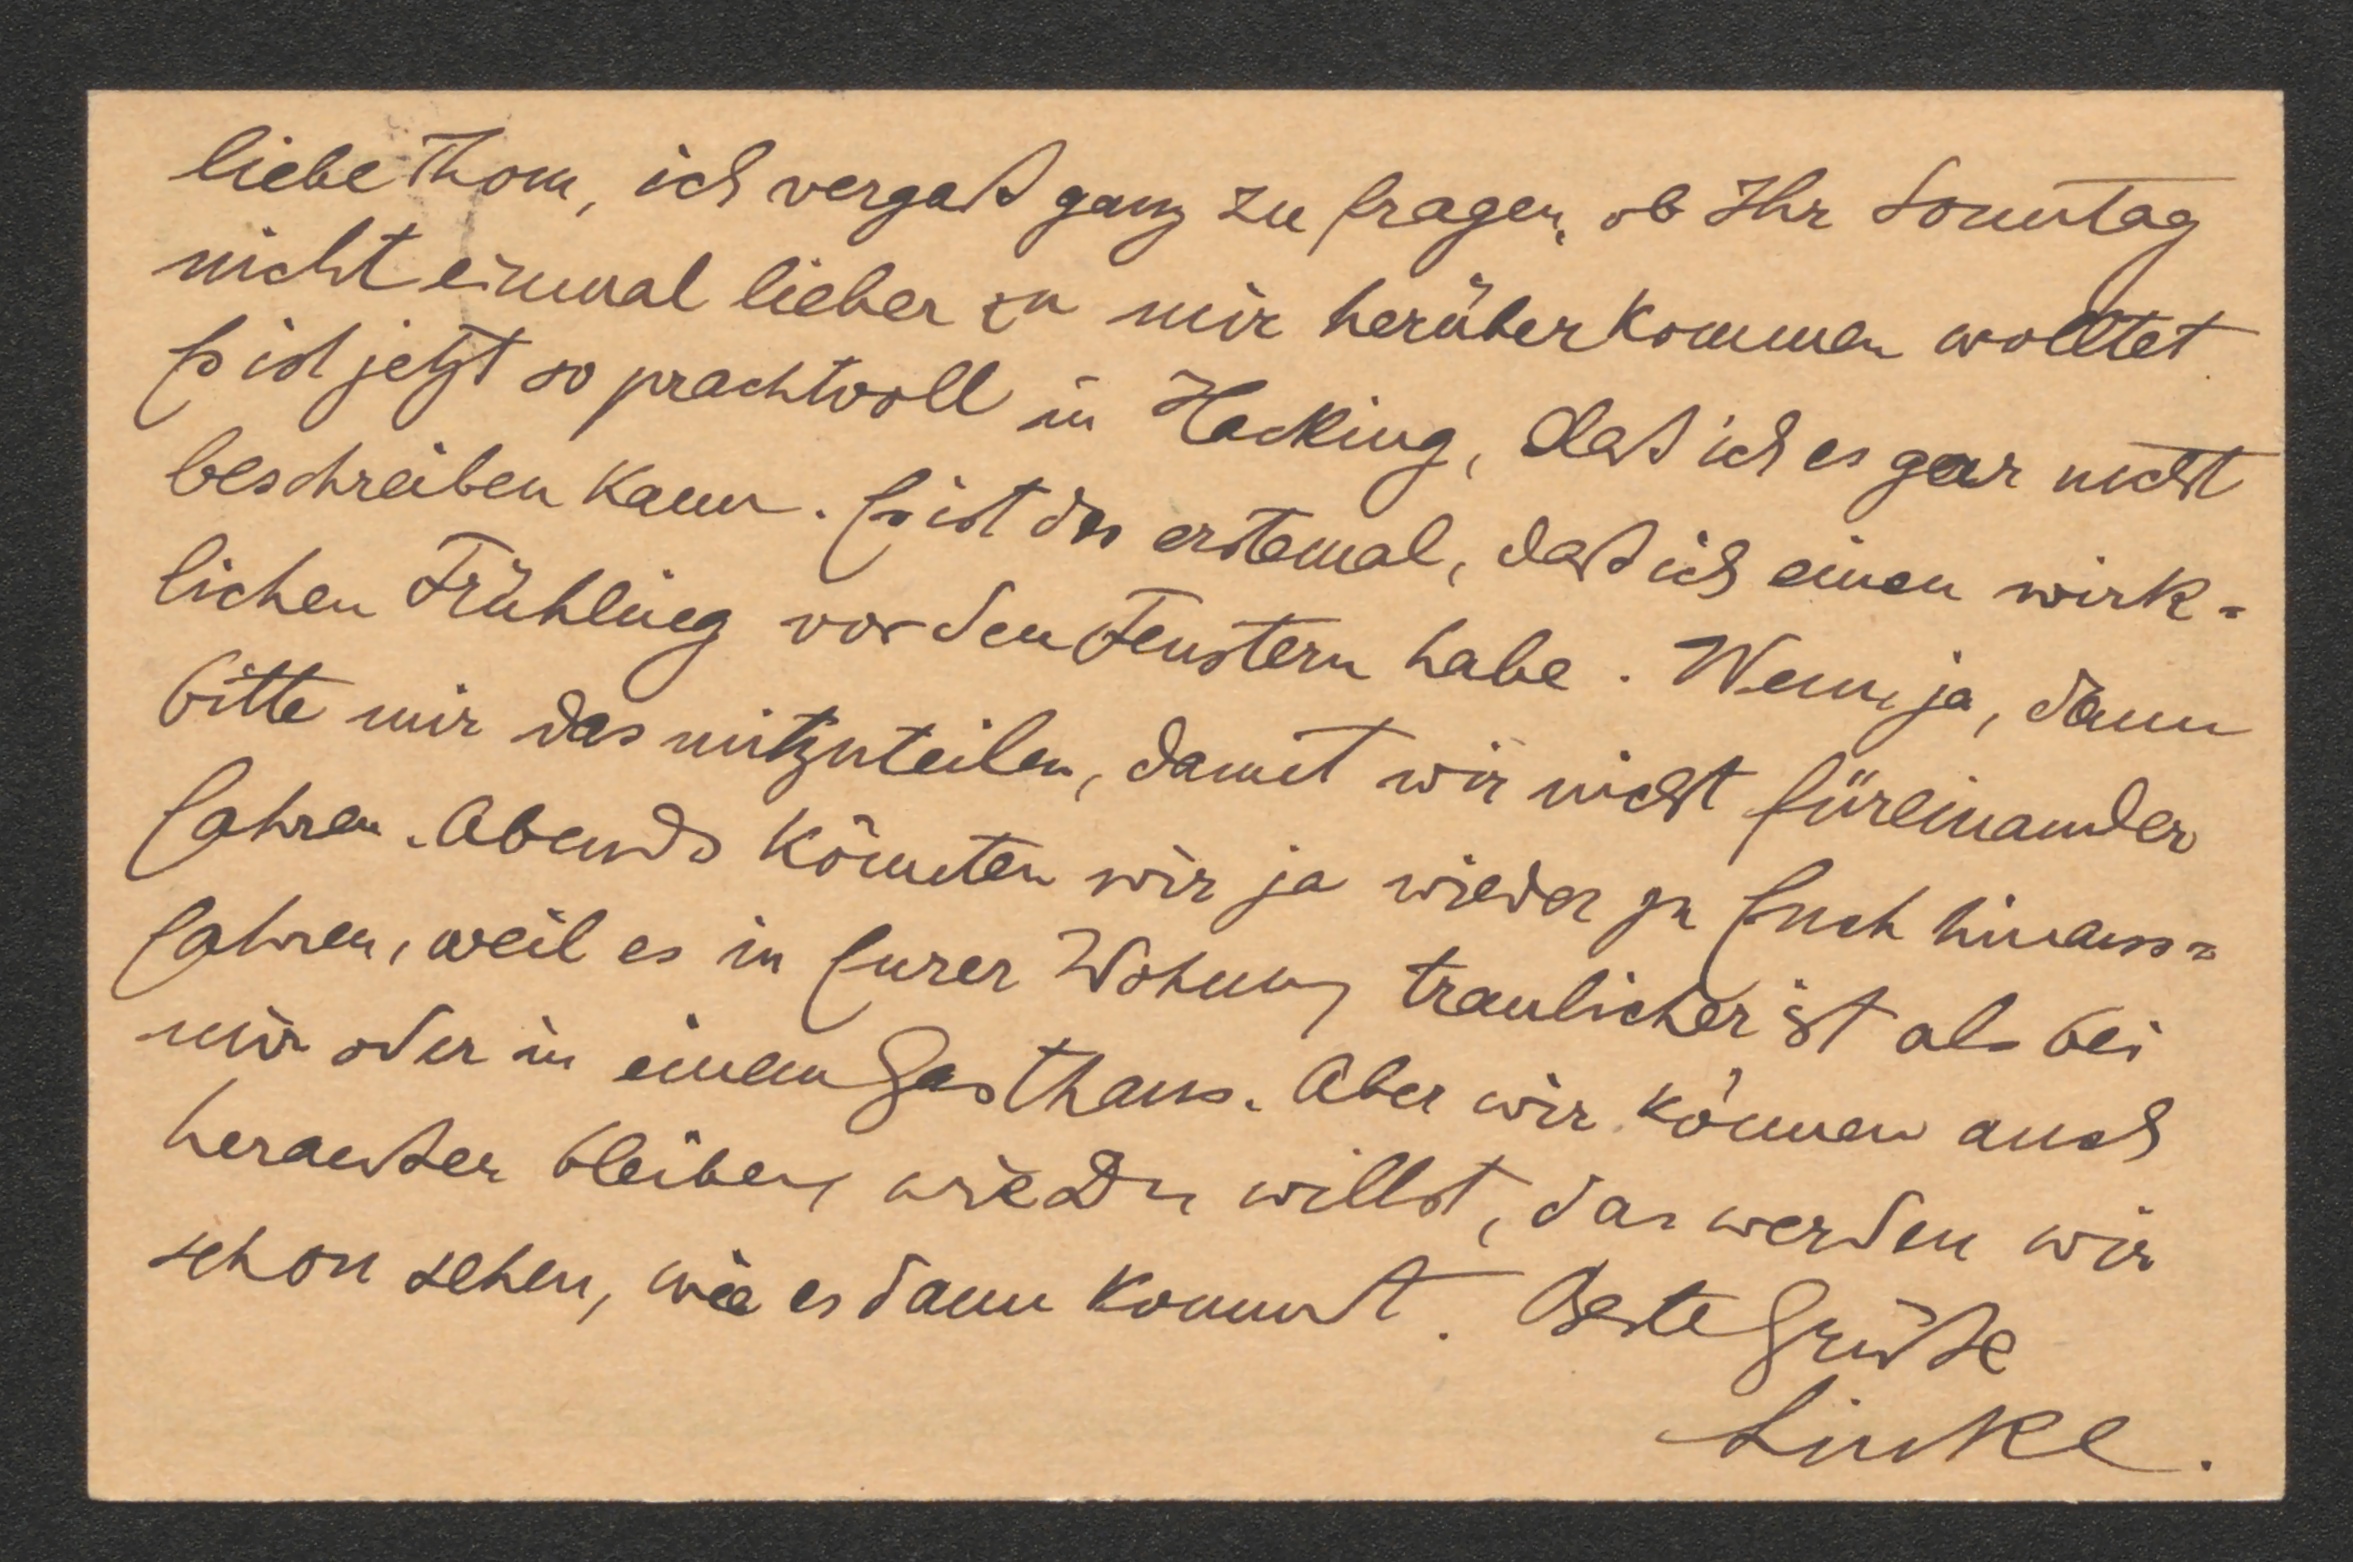 liebe Thom, ich vergaß ganz zu fragen, ob Ihr Sonntag
nicht einmal lieber zu mir herüberkommen wolltet.
Es ist jetzt so prachtvoll in Hacking, daß ich es gar nicht
beschreiben kann. Es ist das erstemal, daß ich einen wirk-
lichen Frühling vor den Fenstern habe. Wenn ja, dann
bitte mir das mitzuteilen, damit wir nicht füreinander
fahren. Abends könnten wir ja wieder zu Euch hinaus-
fahren, weil es in Eurer Wohnung traulicher ist als bei
mir oder in einem Gasthaus. Aber wir können auch
heraußen bleiben, wie Du willst, das werden wir
schon sehen, wie es dann kommt. Beste Grüße
Linke.